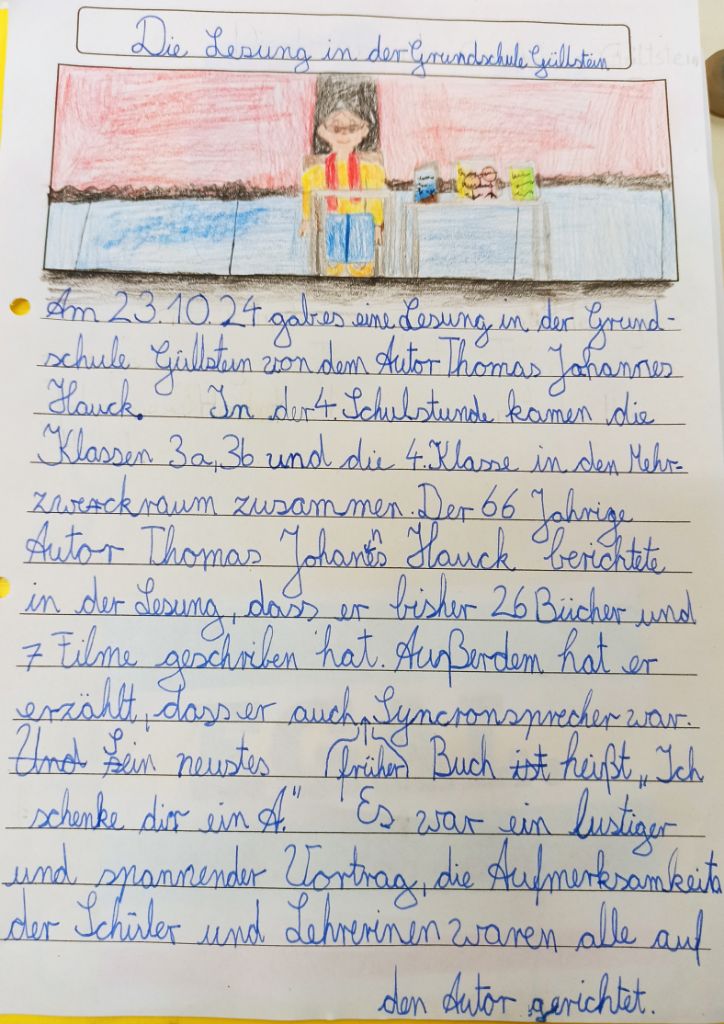 Die Lesung in der Grundschule Gültstein
Am 23.10.24 gab es eine Lesung in der Grund-
schule Gültstein von dem Autor Thomas Johannes
Hauck. In der 4. Schulstunde kamen die
Klassen 3a, 3b und die 4. Klasse in den Mehr-
zweckraum zusammen. Der 66 Jahrige
Autor Thomas Johannes Hauck berichtete
in der Lesung, dass er bisher 26 Bücher und
7 Filme geschriben hat. Außerdem hat er
erzählt, dass er auch früher Syncronsprecher war.
Und Sein neustes Buch ist heißt „Ich
schenke dir ein A." Es war ein lustiger
und spannender Vortrag, die Aufmerksamkeita
der Schüler und Lehrerinen waren alle auf
den Autor gerichtet.